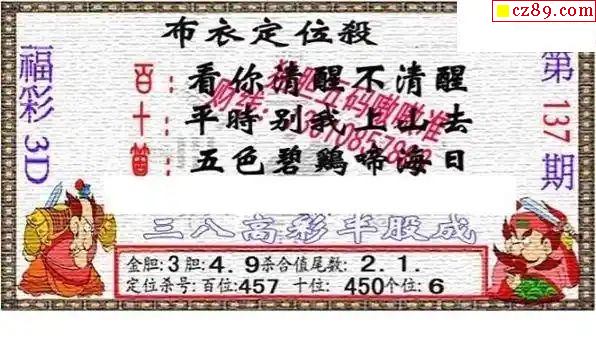 cz89.com
布衣定位殺
福彩3D
第137期
百:看你清醒不清醒
十:平時別我上山去
個:五色碧鷄啼海日
三八高彩半股成
金胆:3胆:4.9杀合值尾数:2.1.
定位杀号:百位:457 十位:450个位:6